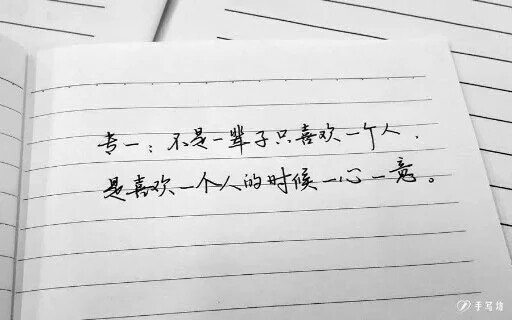 专一：不是一辈子只喜欢一个人，
是喜欢一个人的时候一心一意。
手写坊